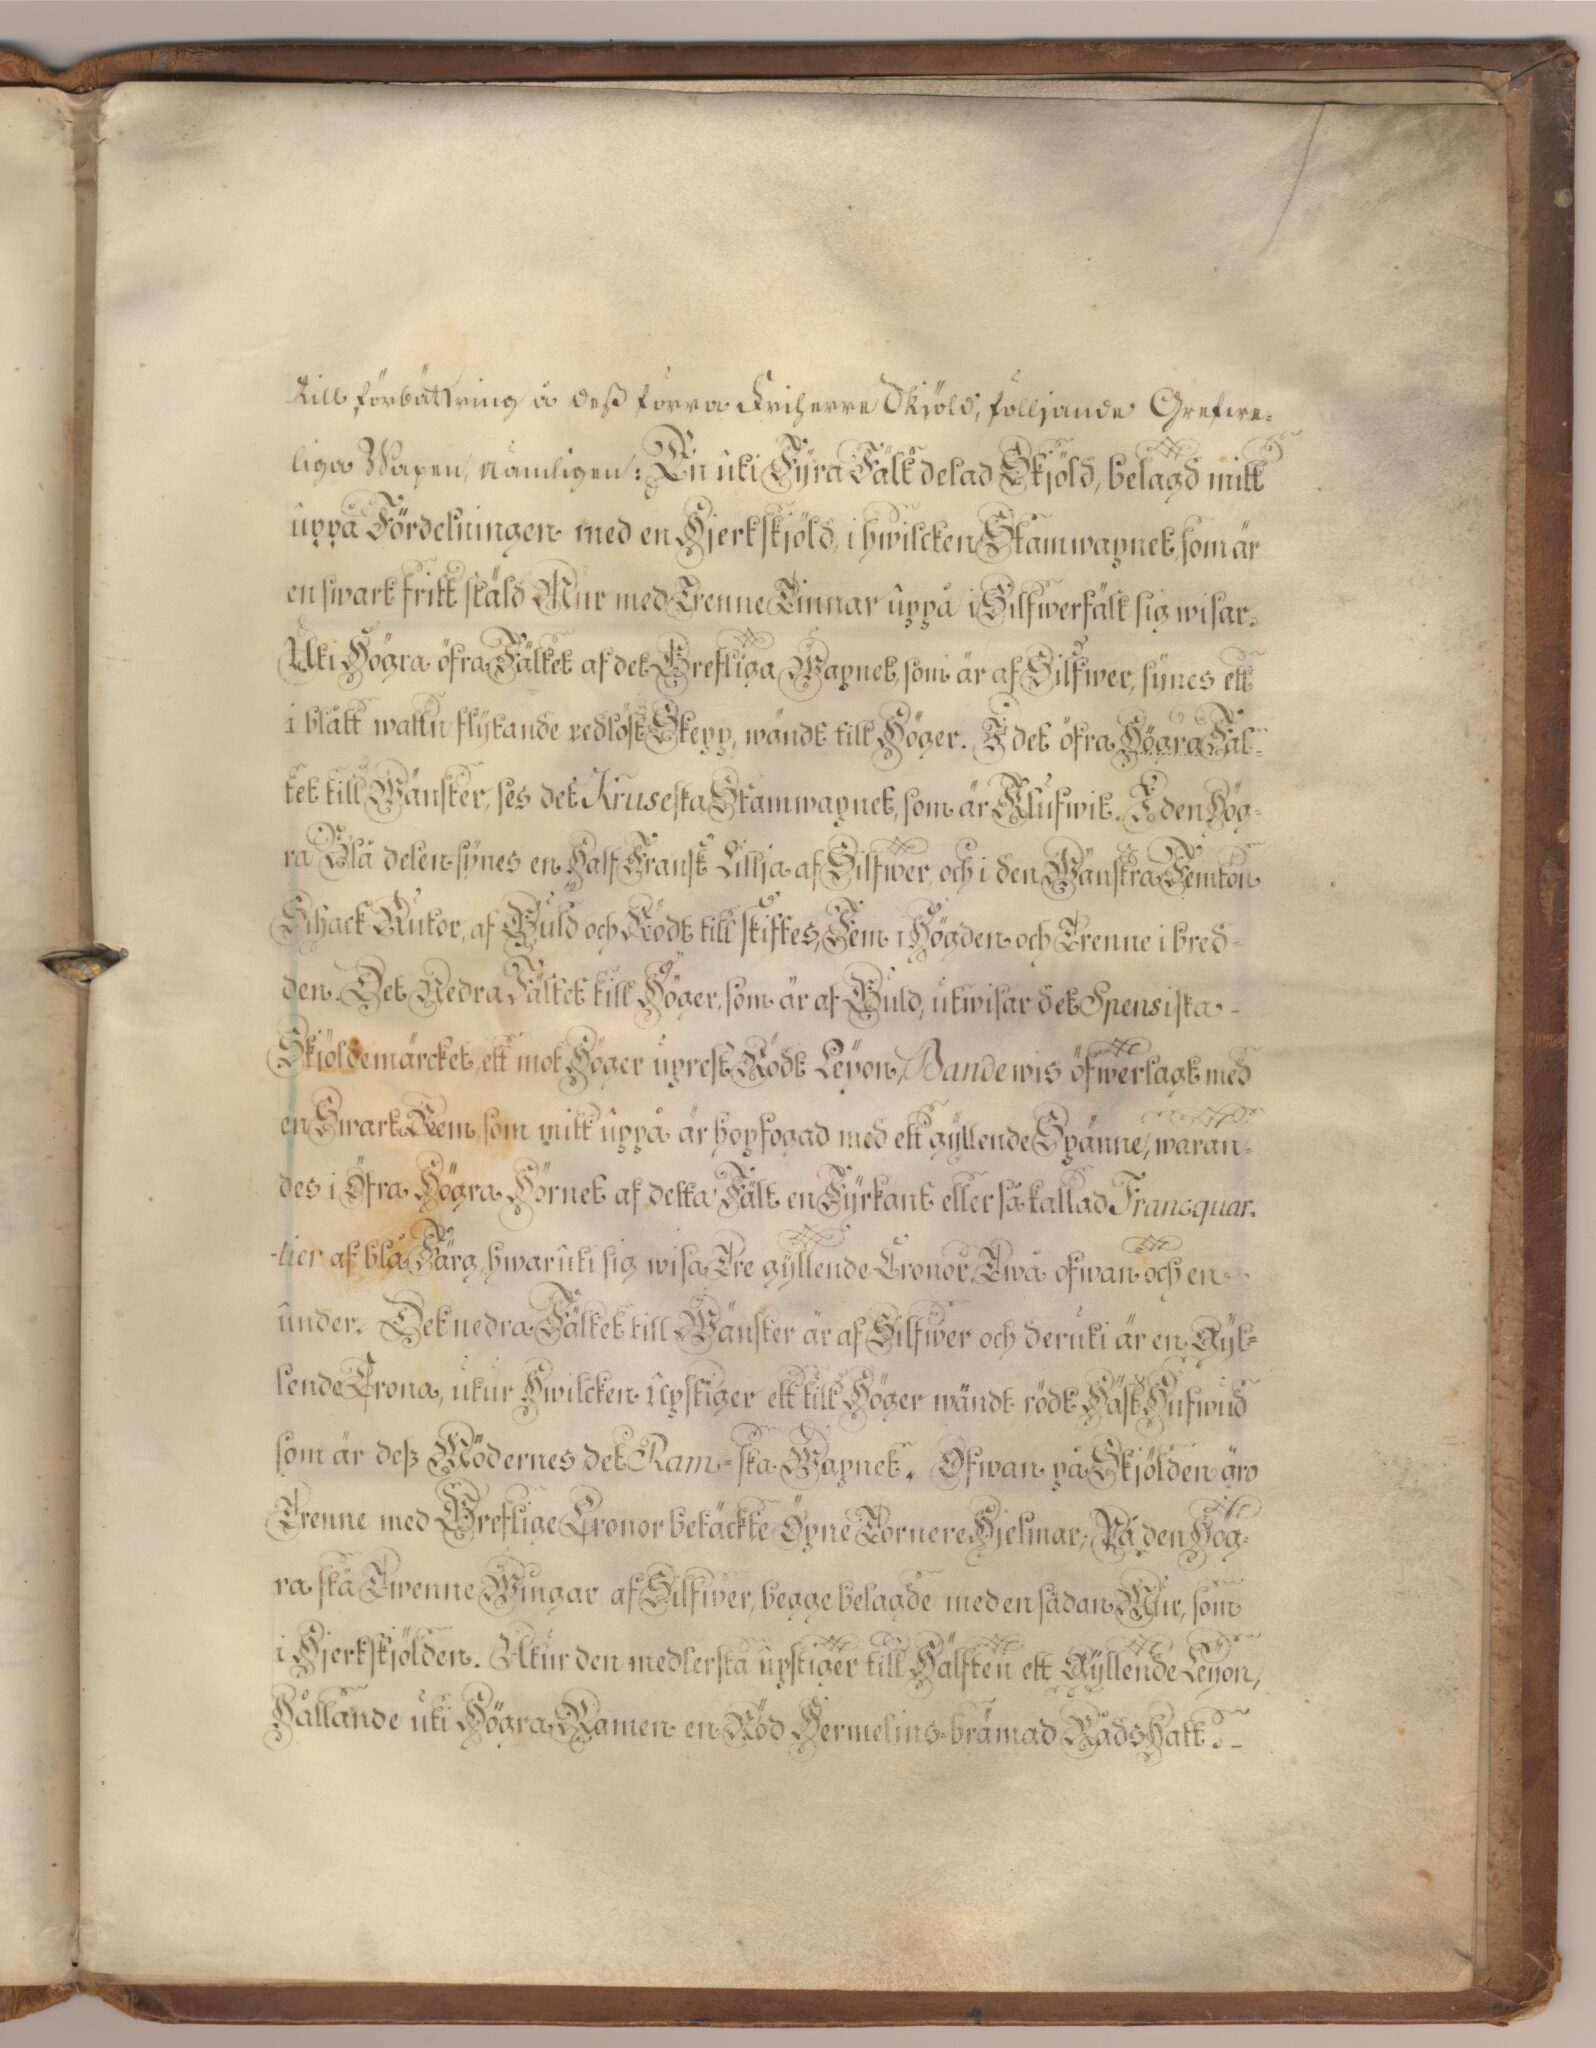 till förbättring å deß förra Friherre Skjöld, följjande Grefwe-
liga Wapen, nämligen: En uti Fyra Fält delad Skjöld, belagd mitt
uppå Fördelningen med en Hjertskjöld, i hwilcken Stamwapnet, som är
en swart fritt stäld Mur med Trenne Tinnar uppå i Silfwerfält sig wisar.
Uti Högra öfra Fältet af det Grefliga Wapnet, som är af Silfwer, synes ett
i blått wattn flytande redlöst Skepp, wändt till Höger. I det öfra Högra Fäl-
tet till Wänster, ses det Kruseska Stamwapnet, som är Klufwit. I den Hög-
ra Blå delen synes en half Fransk Lillja af Silfwer, och i den Wänstra Femton
Schack Rutor, af Guld och Rödt till skiftes, Fem i Högden och Trenne i bred-
den. Det Nedra Fältet till Höger, som är af Guld, utwisar det Spensiska
Skjöldemärcket, ett mot Höger uprest Rödt Leyon, Bandewis öfwerlagt med
en Swart Rem, som mitt uppå är hopfogad med ett gyllende Spänne, waran-
des i Öfra Högra Hörnet af detta Fält en Fyrkant eller så kallad Francquar-
-tier af blå Färg, hwaruti sig wisa Tre gyllende Cronor, Twå ofwan och en
under. Det nedra Fältet till Wänster är af Silfwer och deruti är en Gyl-
lende Crona, utur Hwilcken Upstiger ett till Höger wändt rödt Häst Hufwud
som är deß Mödernes det Ram-ska Wapnet. Ofwan på Skjölden äro
Trenne med Greflige Cronor betäckte Öpne Tornere Hjelmar; På den Hög-
ra stå Twenne Wingar af Silfwer, begge belagde med en sådan Mur, som
i Hjertskjölden. Utur den medlersta upstiger till Hälften ett Gyllende Leyon,
Hållande uti Högra Ramen en Röd Hermelins-brämad Rådshatt.